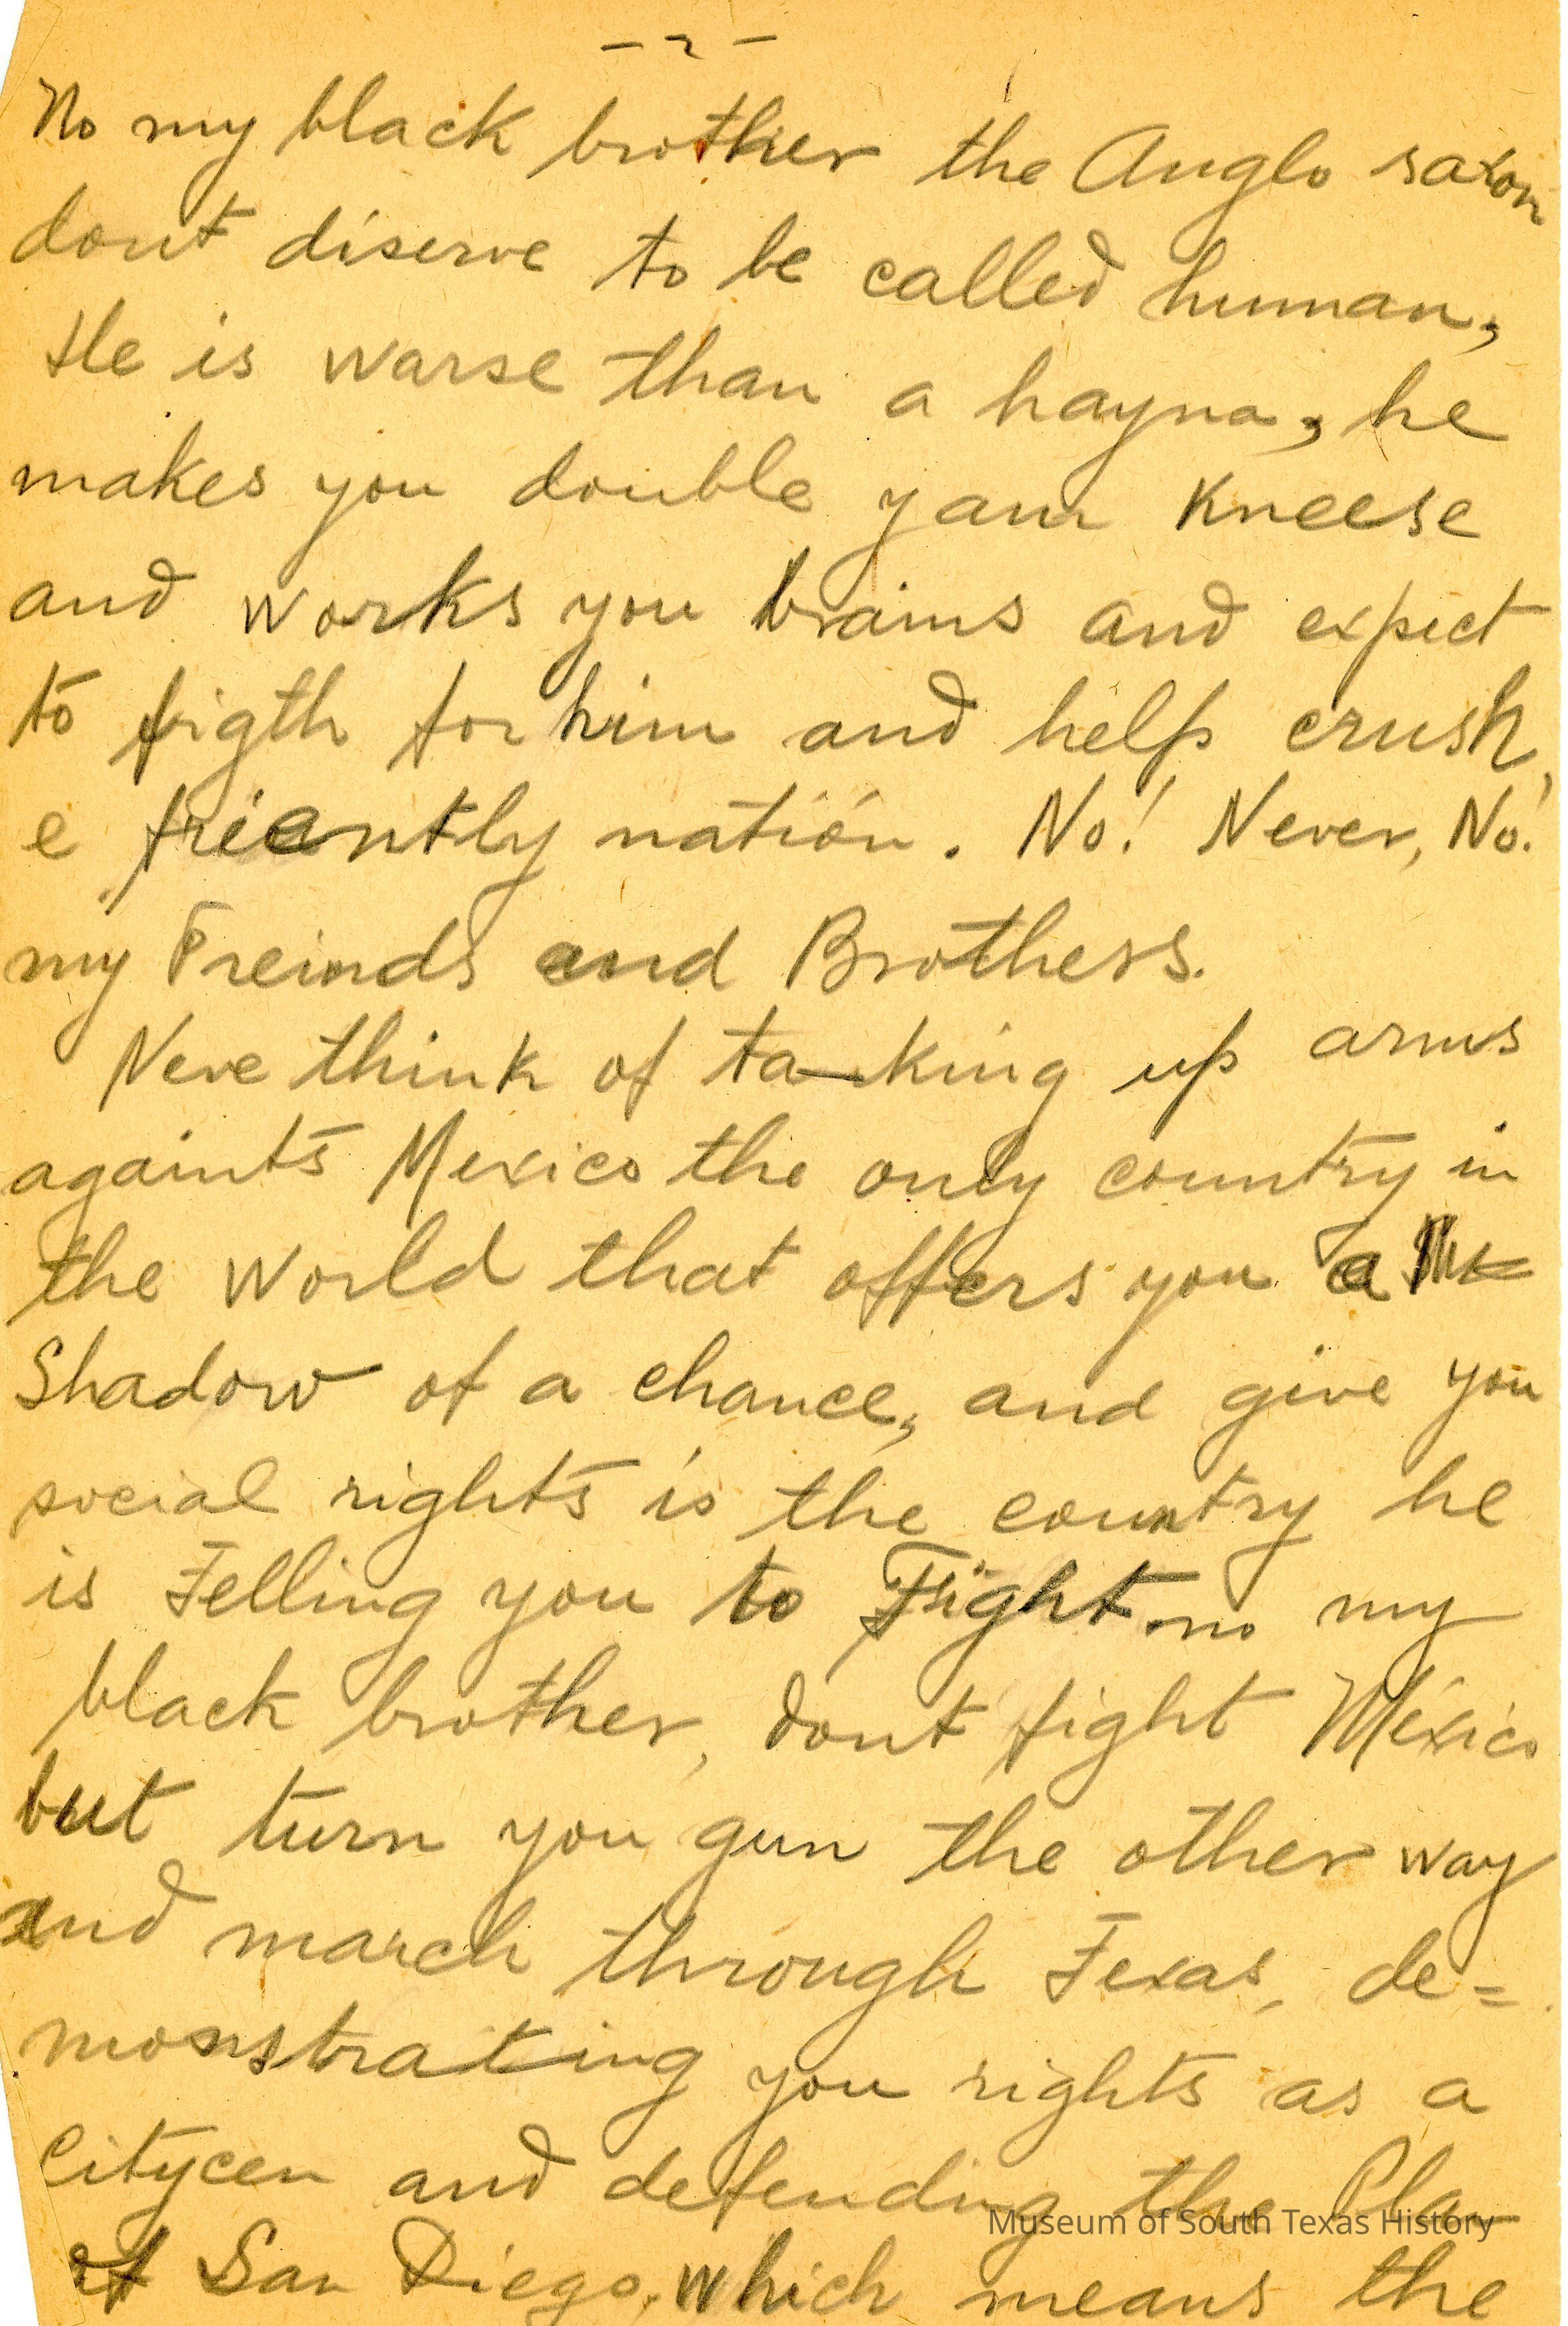 - 2 -
No my black brother the Anglo saxon
dont diserve to be called human,
He is warse than a hayna, he
makes you double your kneese
and works you brains and expect
to figth for him and help crush,
e friently natión. No! Never, No!
my Freinds and Brothers.
Neve think of taking up arms
againts Mexico the only country in
the world that offers you a
Shadow of a chance, and give you
social rights is the country he
is Telling you to Fight. no my
black brother, dont fight México
but turn you gun the other way
and march through Texas, de=
monstrating you rights as a
Citycen and defending the Plan
of San Diego, which means the
Museum of South Texas History